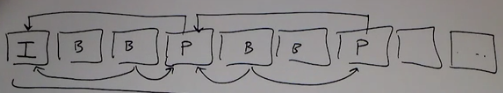 I B B P B B P ...